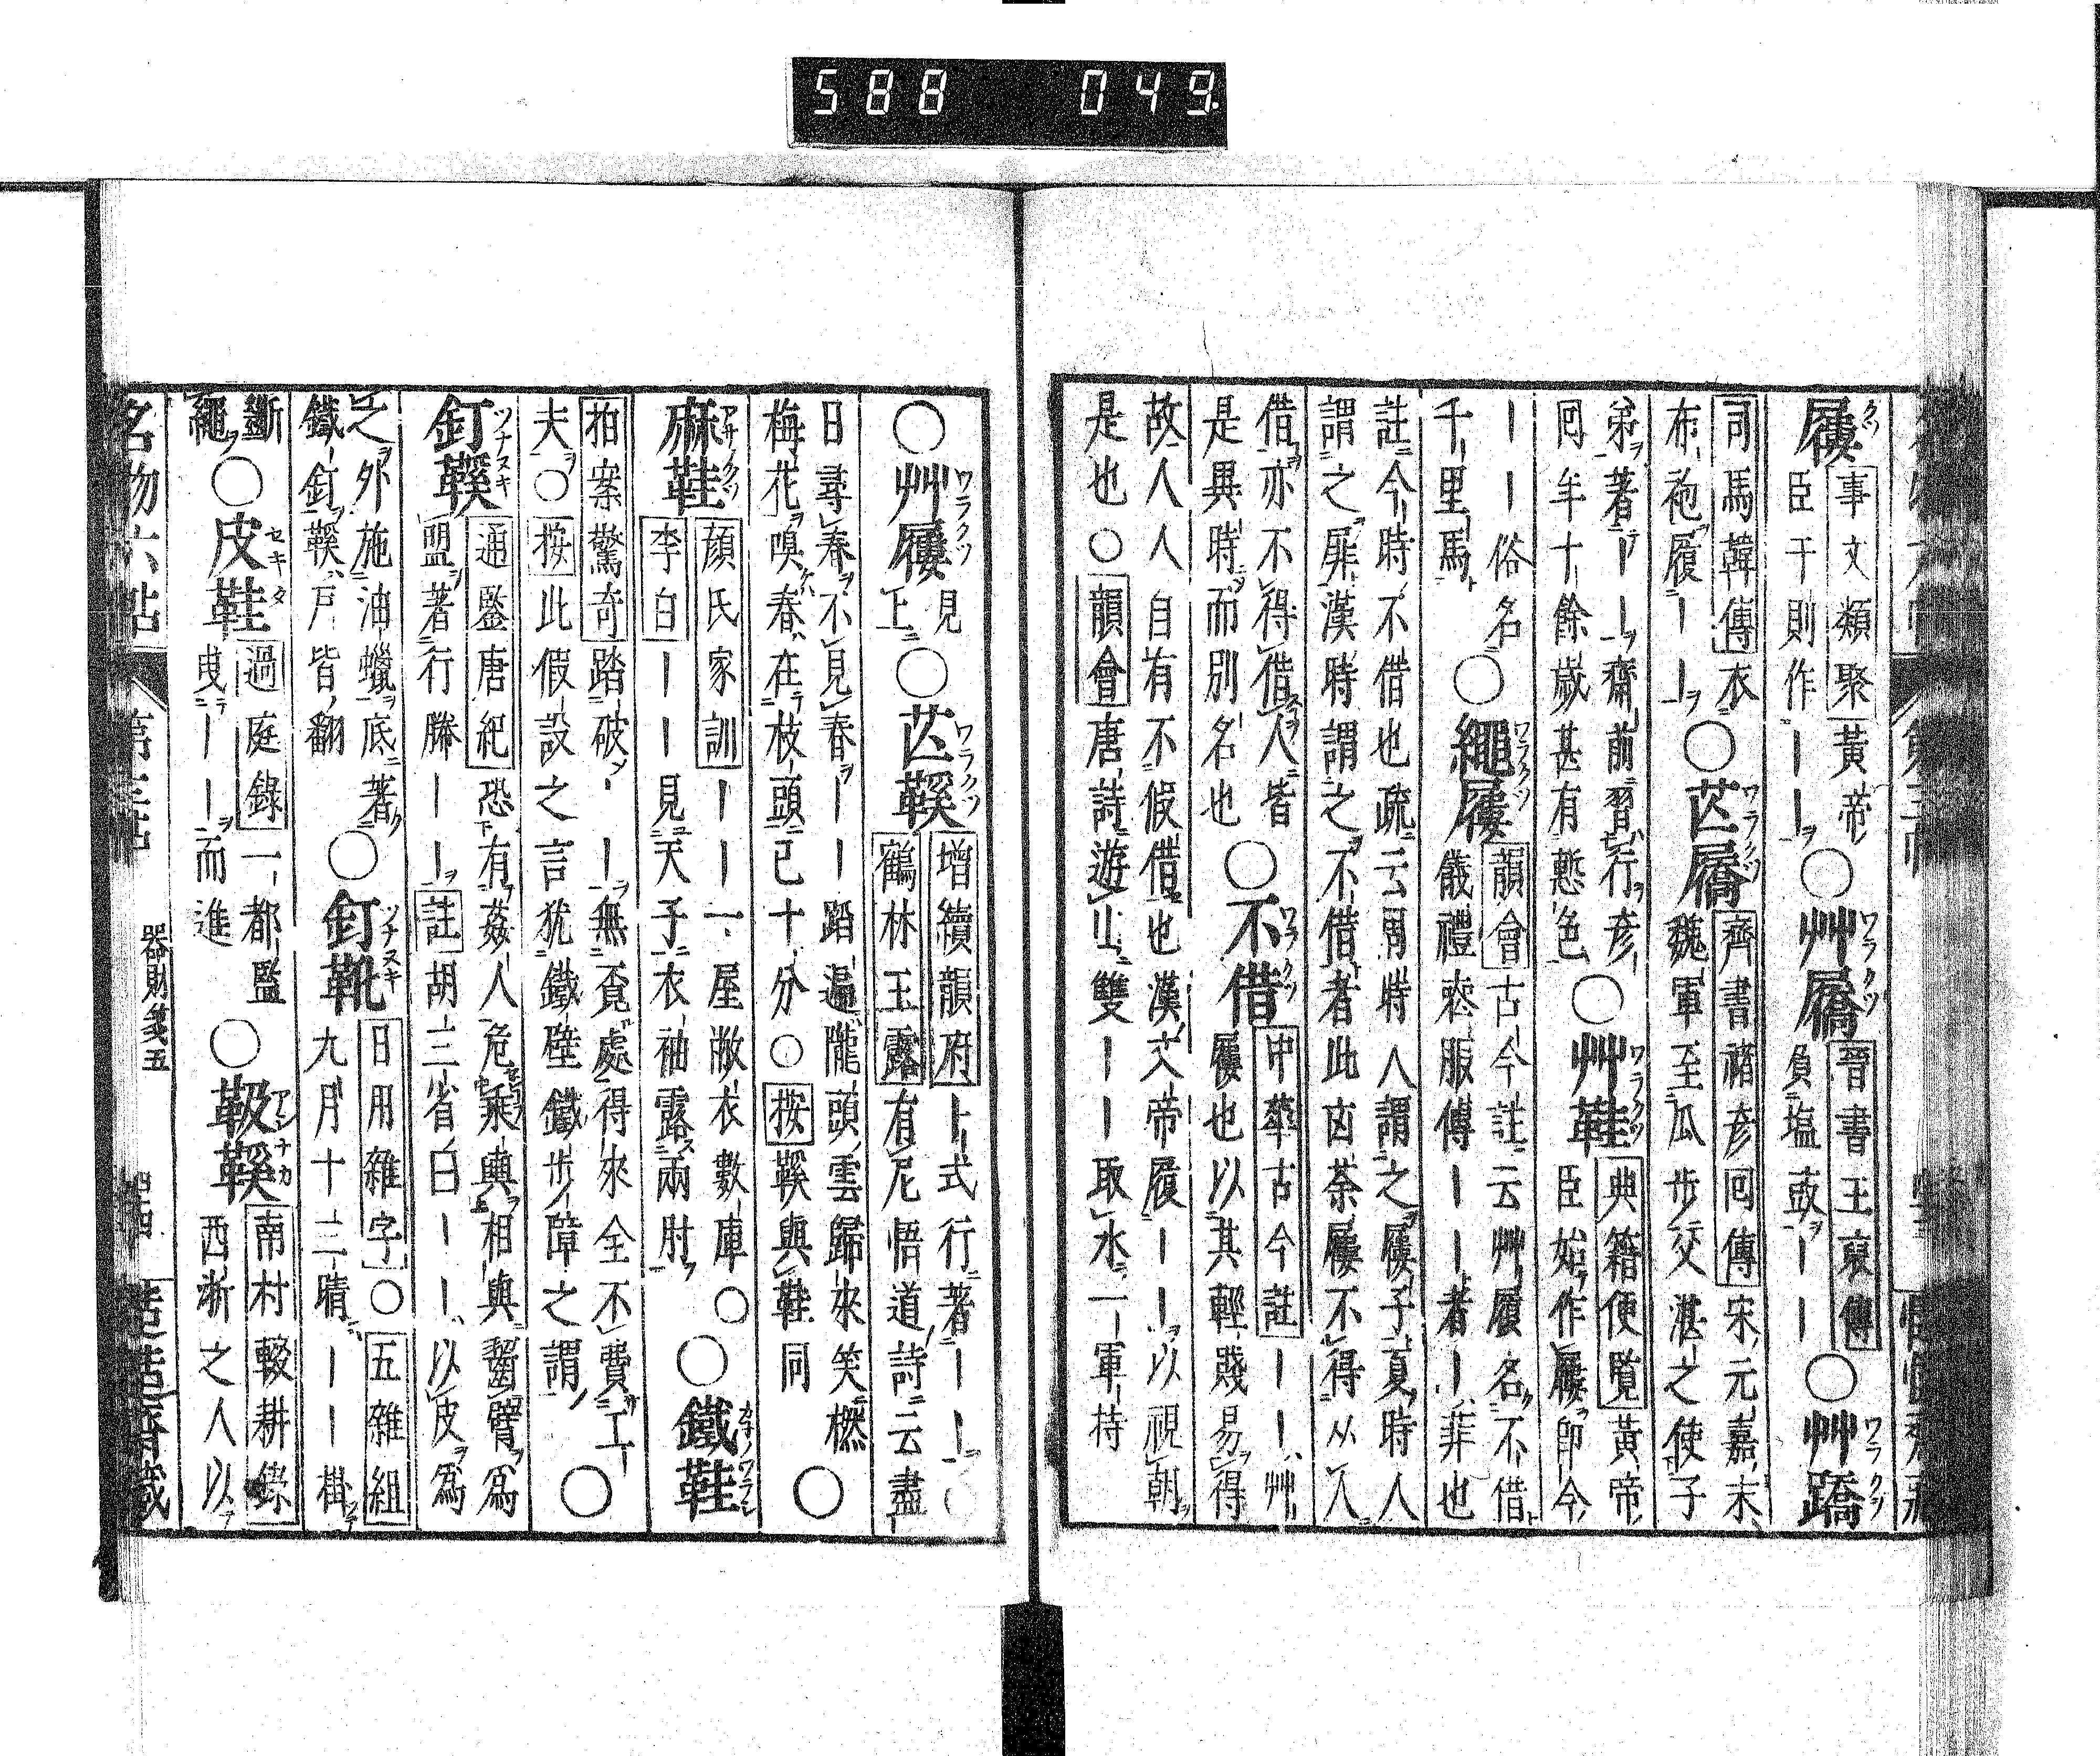 588 049.
屨 事文類聚 黃帝
臣于則作｜｜
○艸屩 晉書王裒傳
負塩豉｜｜
○艸蹻
司馬韓傳 衣
布袍履｜｜
○芒屩 齊書褚彥回傳 宋元嘉末
魏軍至瓜步父湛之使子
弟著｜｜齋前習行彥
回年十餘歲甚有慙色
○艸鞋 典籍便覧 黃帝
臣始作屨卽今
｜｜俗名
千里馬
○繩屨 韻會 古今註云艸履名不借
儀禮喪服傳｜｜者｜菲也
註今時不借也疏云周時人謂之屨子夏時人
謂之屝漢時謂之不借者此凶荼屨不得从人
借亦不得借人皆
是異時而別名也
○不借 中華古今註 ｜｜艸
屨也以其輕賤易得
故人人自有不假借也漢文帝履｜｜以視朝
是也○韻會 唐詩遊山雙｜｜取水一軍持
○艸屨 見
上
○芒鞵 增續韻府 上式行著｜｜○
鶴林玉露 有尼悟道詩云盡
日尋春不見春｜｜踏遍隴頭雲歸來笑撚
梅花嗅春在枝頭已十分○按鞵與鞋同
○
麻鞋 顏氏家訓 ｜｜一屋敝衣數庫○
李白｜｜見天子衣袖露兩肘
○鐵鞋
拍案驚奇 踏破｜｜無覓處得來全不費工
夫○按此假設之言犹鐵壁鐵步障之謂
○
釘鞵 通鑒唐紀 恐有姦人危乘輿相與齧臂為
盟著行縢｜｜註胡三省曰｜｜以皮為
之外施油蠟底著
鐵釘鞵戶皆翻
○釘靴 日用雜字○五雜組
九月十三晴｜｜掛
斷
繩
○皮鞋 過庭錄 一都監
曵｜｜而進
○靸鞵 南村輟耕錄
西浙之人以
名物六帖 第三帖 器財箋五